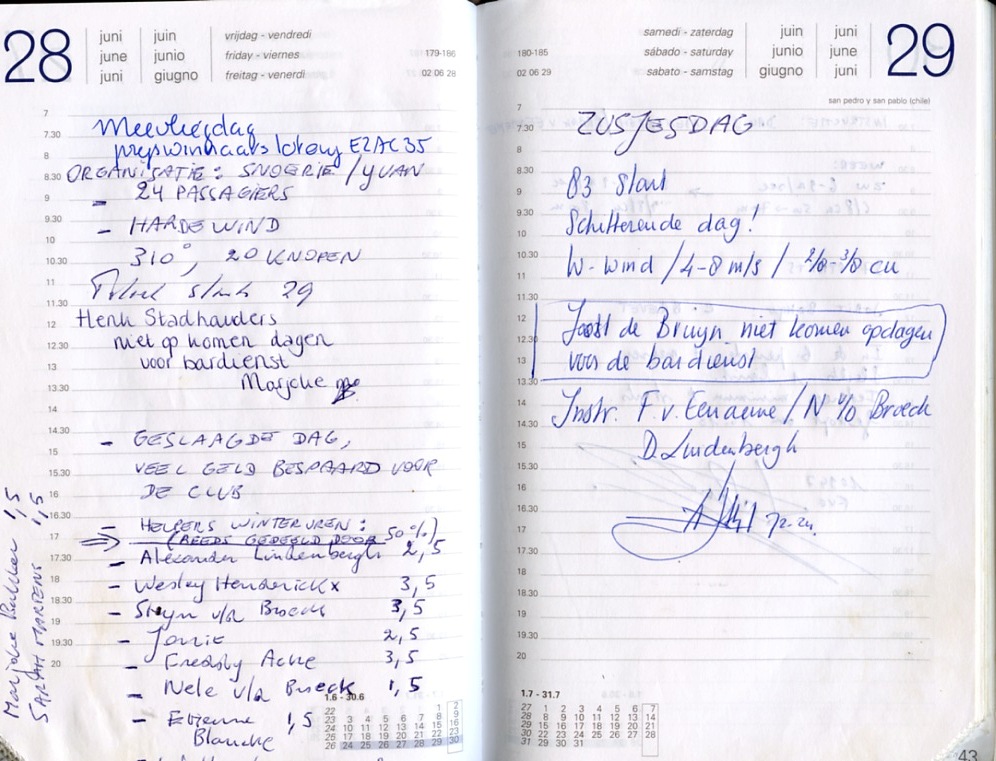 28
juni juin vrijdag - vendredi
june junio friday - viernes 179-186
juni giugno freitag - venerdi 02 06 28
Meevliegdag
prijswinnaars lotery EZAC 35
ORGANISATIE: SNOERIE / YVAN
- 24 PASSAGIERS
- HARDE WIND
310°, 20 KNOPEN
29
Henk Stadhouders
niet op komen dagen
voor bardienst
Marjoke
- GESLAAGDE DAG,
VEEL GELD BESPAARD VOOR
DE CLUB
- HELPERS WINTERUREN:
(REEDS GEDEELD DOOR 50%)
- Alexander Lindenbergh 2,5
- Wesley Henderickx 3,5
- Stijn v/d Broeck 3,5
- 2,5
- Freddy Ache 3,5
- Nele v/d Broeck 1,5
- Etienne 1,5
Blancke
Marjoke 1,5
SARAH MARTENS 1,5
7
7.30
8
8.30
9
9.30
10
10.30
11
11.30
12
12.30
13
13.30
14
14.30
15
15.30
16
16.30
17
17.30
18
18.30
19
19.30
20
1.6 - 30.6
22 1 2
23 3 4 5 6 7 8 9
24 10 11 12 13 14 15 16
25 17 18 19 20 21 22 23
26 24 25 26 27 28 29 30
samedi - zaterdag juin juni
sábado - saturday junio june
180-185 sabato - samstag giugno juni
02 06 29
29
san pedro y san pablo (chile)
ZUSJESDAG
83 Start
Schitterende dag!
W-wind / 4-8 m/s / 2/8-3/8 cu
Joost de Bruyn niet komen opdagen
voor de bardienst
Instr. F. v. Eenaeme / N v/d Broeck
D. Lindenbergh
7
7.30
8
8.30
9
9.30
10
10.30
11
11.30
12
12.30
13
13.30
14
14.30
15
15.30
16
16.30
17
17.30
18
18.30
19
19.30
20
1.7 - 31.7
27 1 2 3 4 5 6 7
28 8 9 10 11 12 13 14
29 15 16 17 18 19 20 21
30 22 23 24 25 26 27 28
31 29 30 31
43